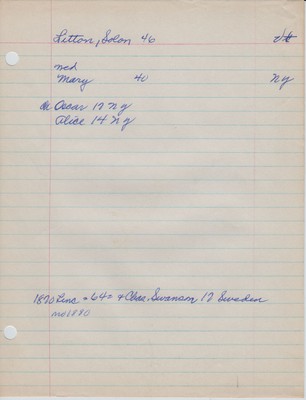 Litton, Solon 46 Vt
md
Mary 40 N Y
ch Oscar 17 N Y
Alice 14 N Y
1870 Linc = 64 = + Chas. Swanson 17 Sweden
no 1880